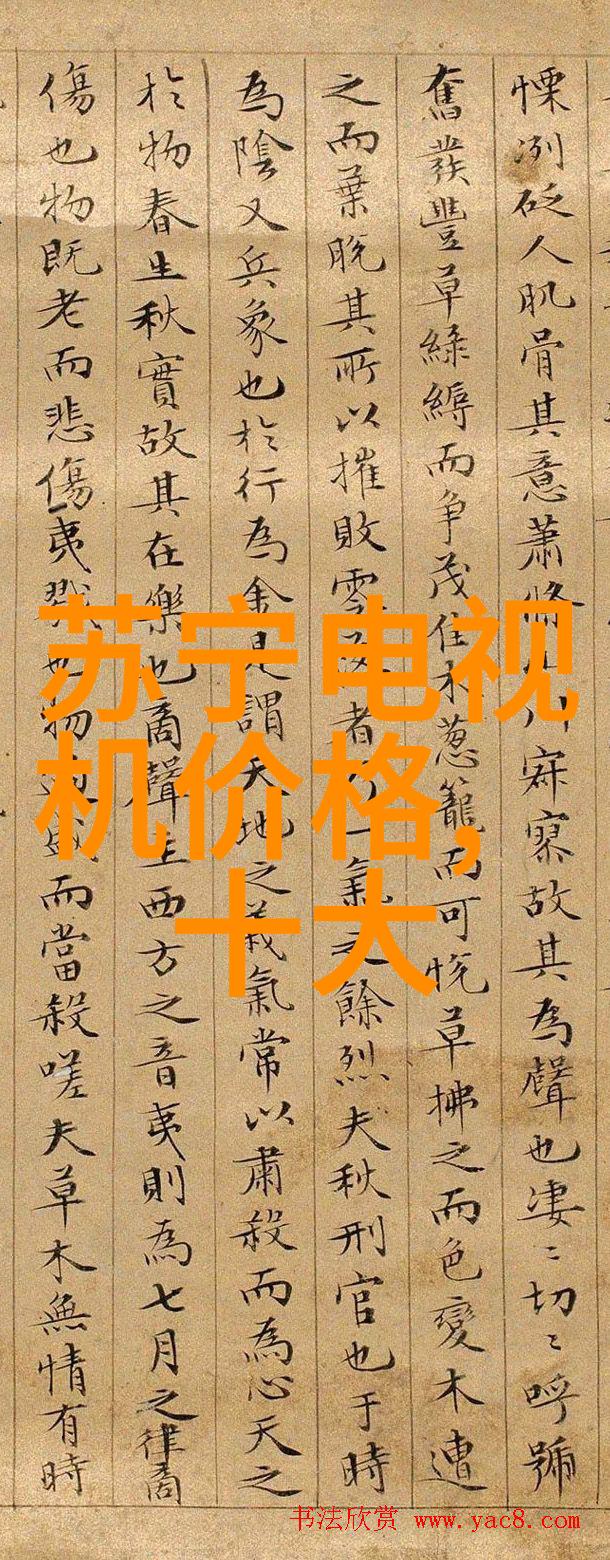 慄冽砭人肌骨其意蕭條山川寂寥故其為聲也凄〻切〻呼號
奮發豐草綠縟而争茂佳木葱籠而可悅草拂之而色變木遭
之而葉脫其所以摧敗零落者乃一氣之餘烈夫秋刑官也于時
為陰又兵象也於行為金是謂天地之義氣常以肅殺而為心天之
於物春生秋實故其在樂也商聲主西方之音夷則為七月之律商
傷也物既老而悲傷夷戮也物過盛而當殺嗟夫草木無情有時
苏宁电视
机价格,
十大
书法欣赏 www.yac8.com